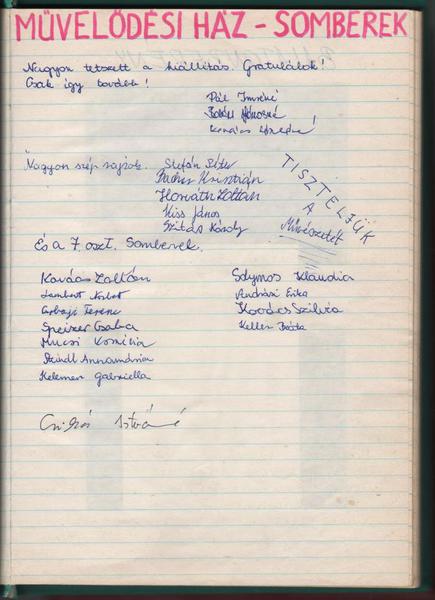 MŰVELŐDÉSI HÁZ - SOMBEREK
Nagyon tetszett a kiállítás. Gratulálok!
Csak így tovább!
Pál Imréné
Jánosné
Kovács
Nagyon szép rajzok. Stefán Péter
Krisztián
Horváth Zoltán
Kiss János
Szitás Károly
TISZTELJÜK
A
Művészetét
És a 7. oszt. Somberek.
Kovács Zoltán
Lambert Norbert
Ferenc
Speizer Csaba
Mucsi Kornélia
Steindl Annamária
Kelemen Gabriella
Sólymos Klaudia
Andrási Erika
Kovács Szilvia
Keller Beáta
Istváné